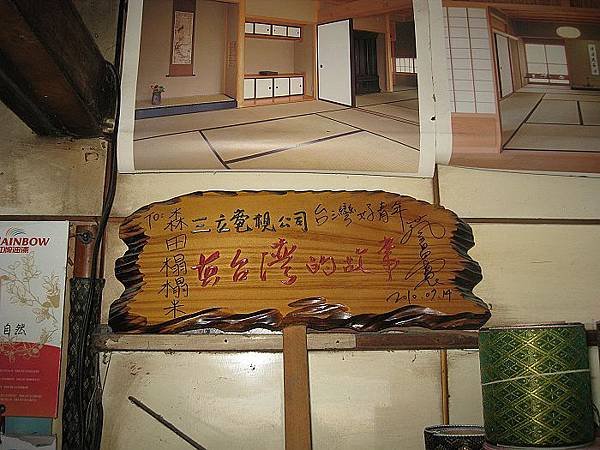 RAINBOW
虹牌油漆
自然
TO:
森田榻榻米
三立電視公司 台灣好青年
在台灣的故事
2010.09.14